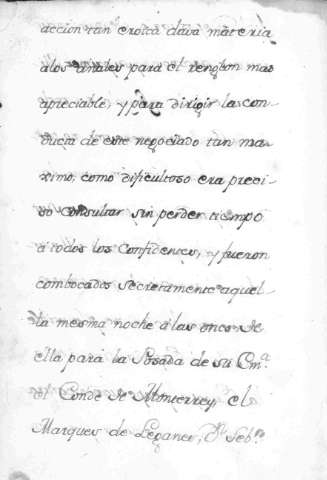 accion tan eroica dava materia
a los anales para el renglon mas
apreciable, y para dirigir la con-
ducta de este negociado tan ma-
ximo, como dificultoso era preci-
so consultar sin perder tiempo
á todos los Confidentes, y fueron
combocados secretamente aquel-
la mesma noche á las once de
ella para la Posada de su Em.ª
el Conde de Monterrey, el
Marques de Leganes, D.ⁿ Seb.ⁿ